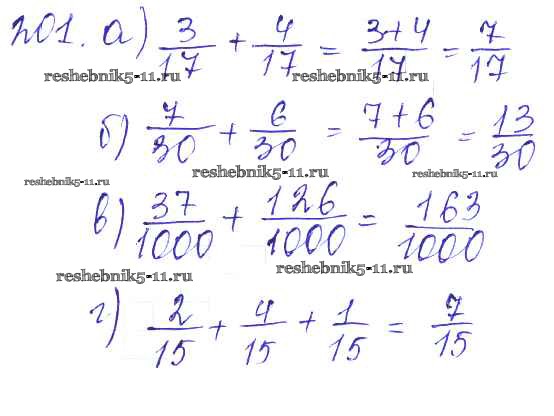 201. а) 3/17 + 4/17 = 3+4/17 = 7/17
reshebnik5-11.ru reshebnik5-11.ru
б) 7/30 + 6/30 = 7+6/30 = 13/30
reshebnik5-11.ru reshebnik5-11.ru reshebnik5-11.ru
в) 37/1000 + 126/1000 = 163/1000
reshebnik5-11.ru reshebnik5-11.ru
г) 2/15 + 4/15 + 1/15 = 7/15